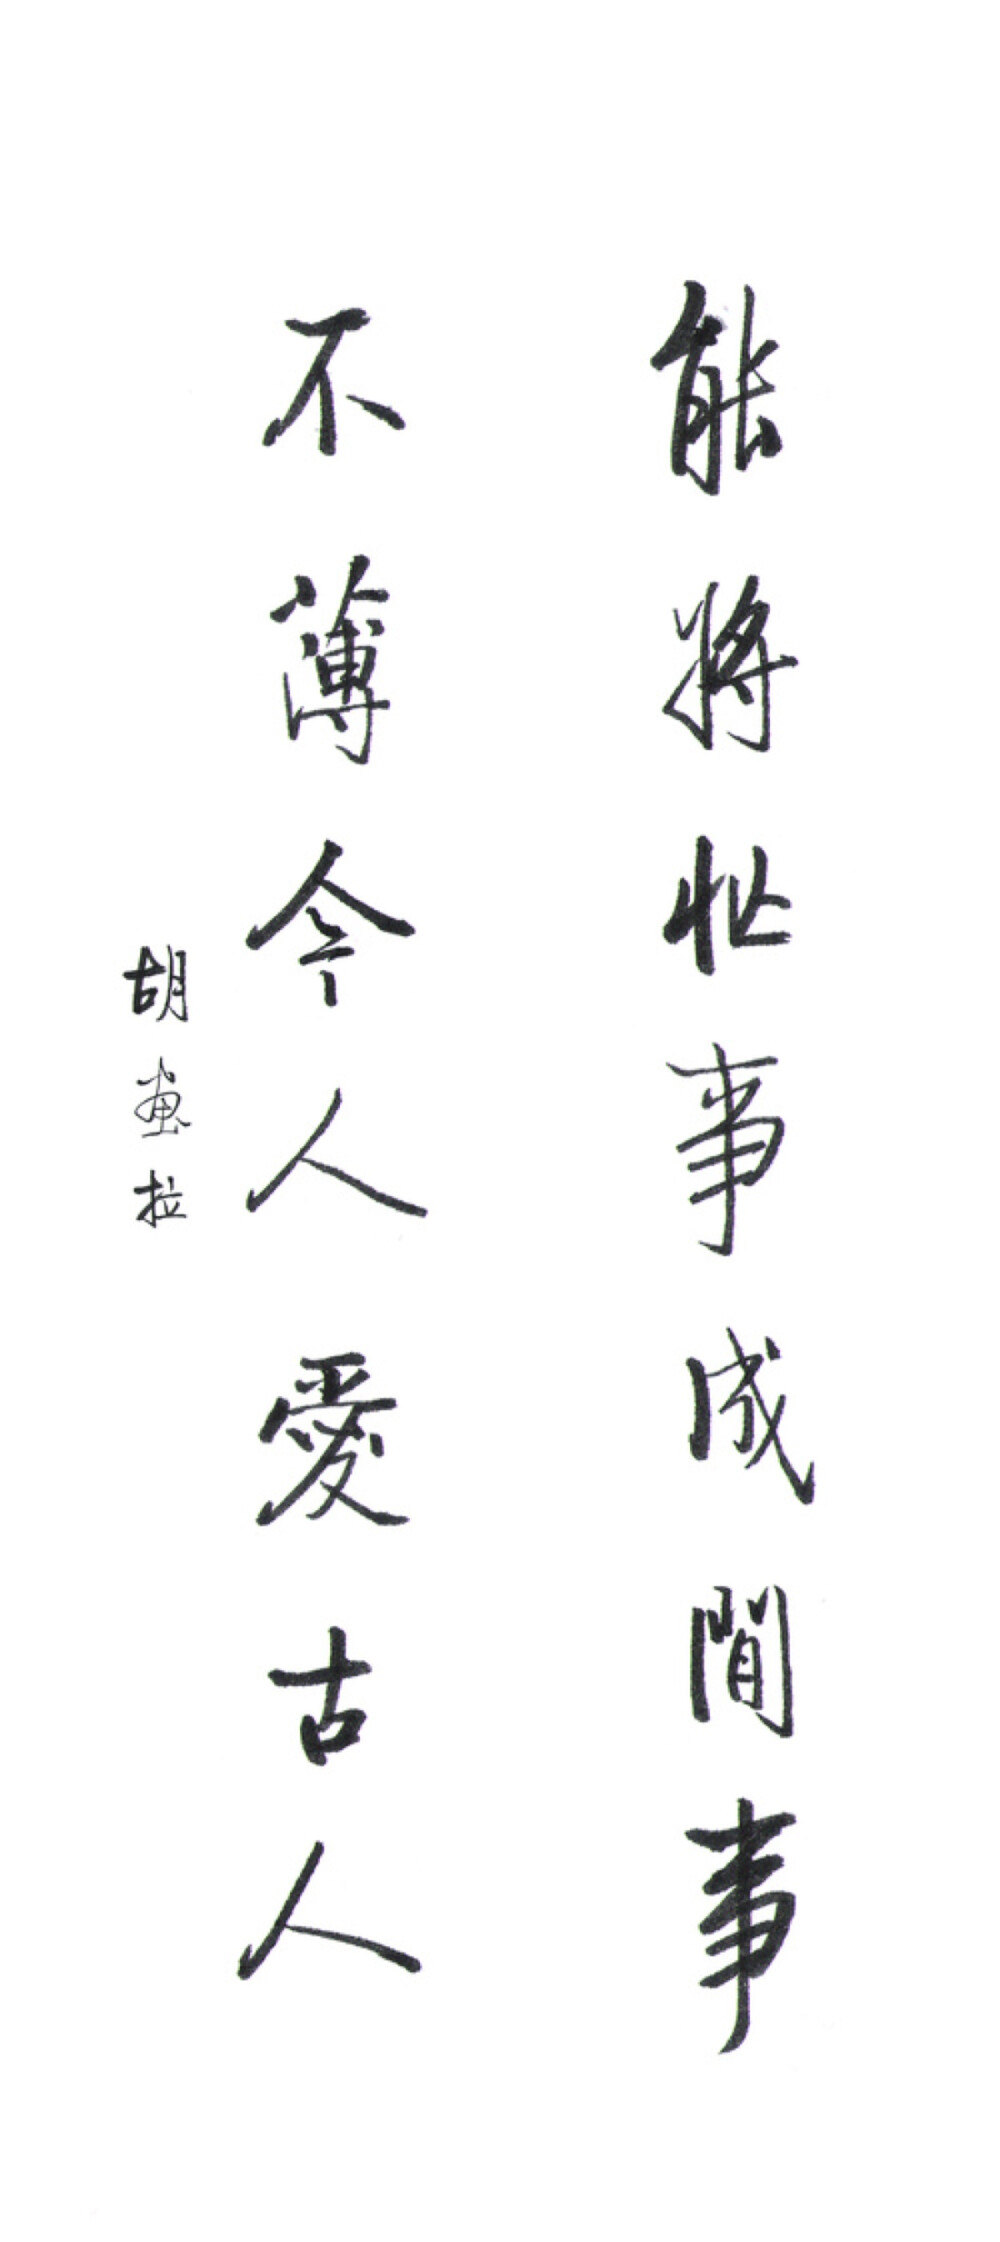 能將忙事成閒事
不薄今人愛古人
胡画拉